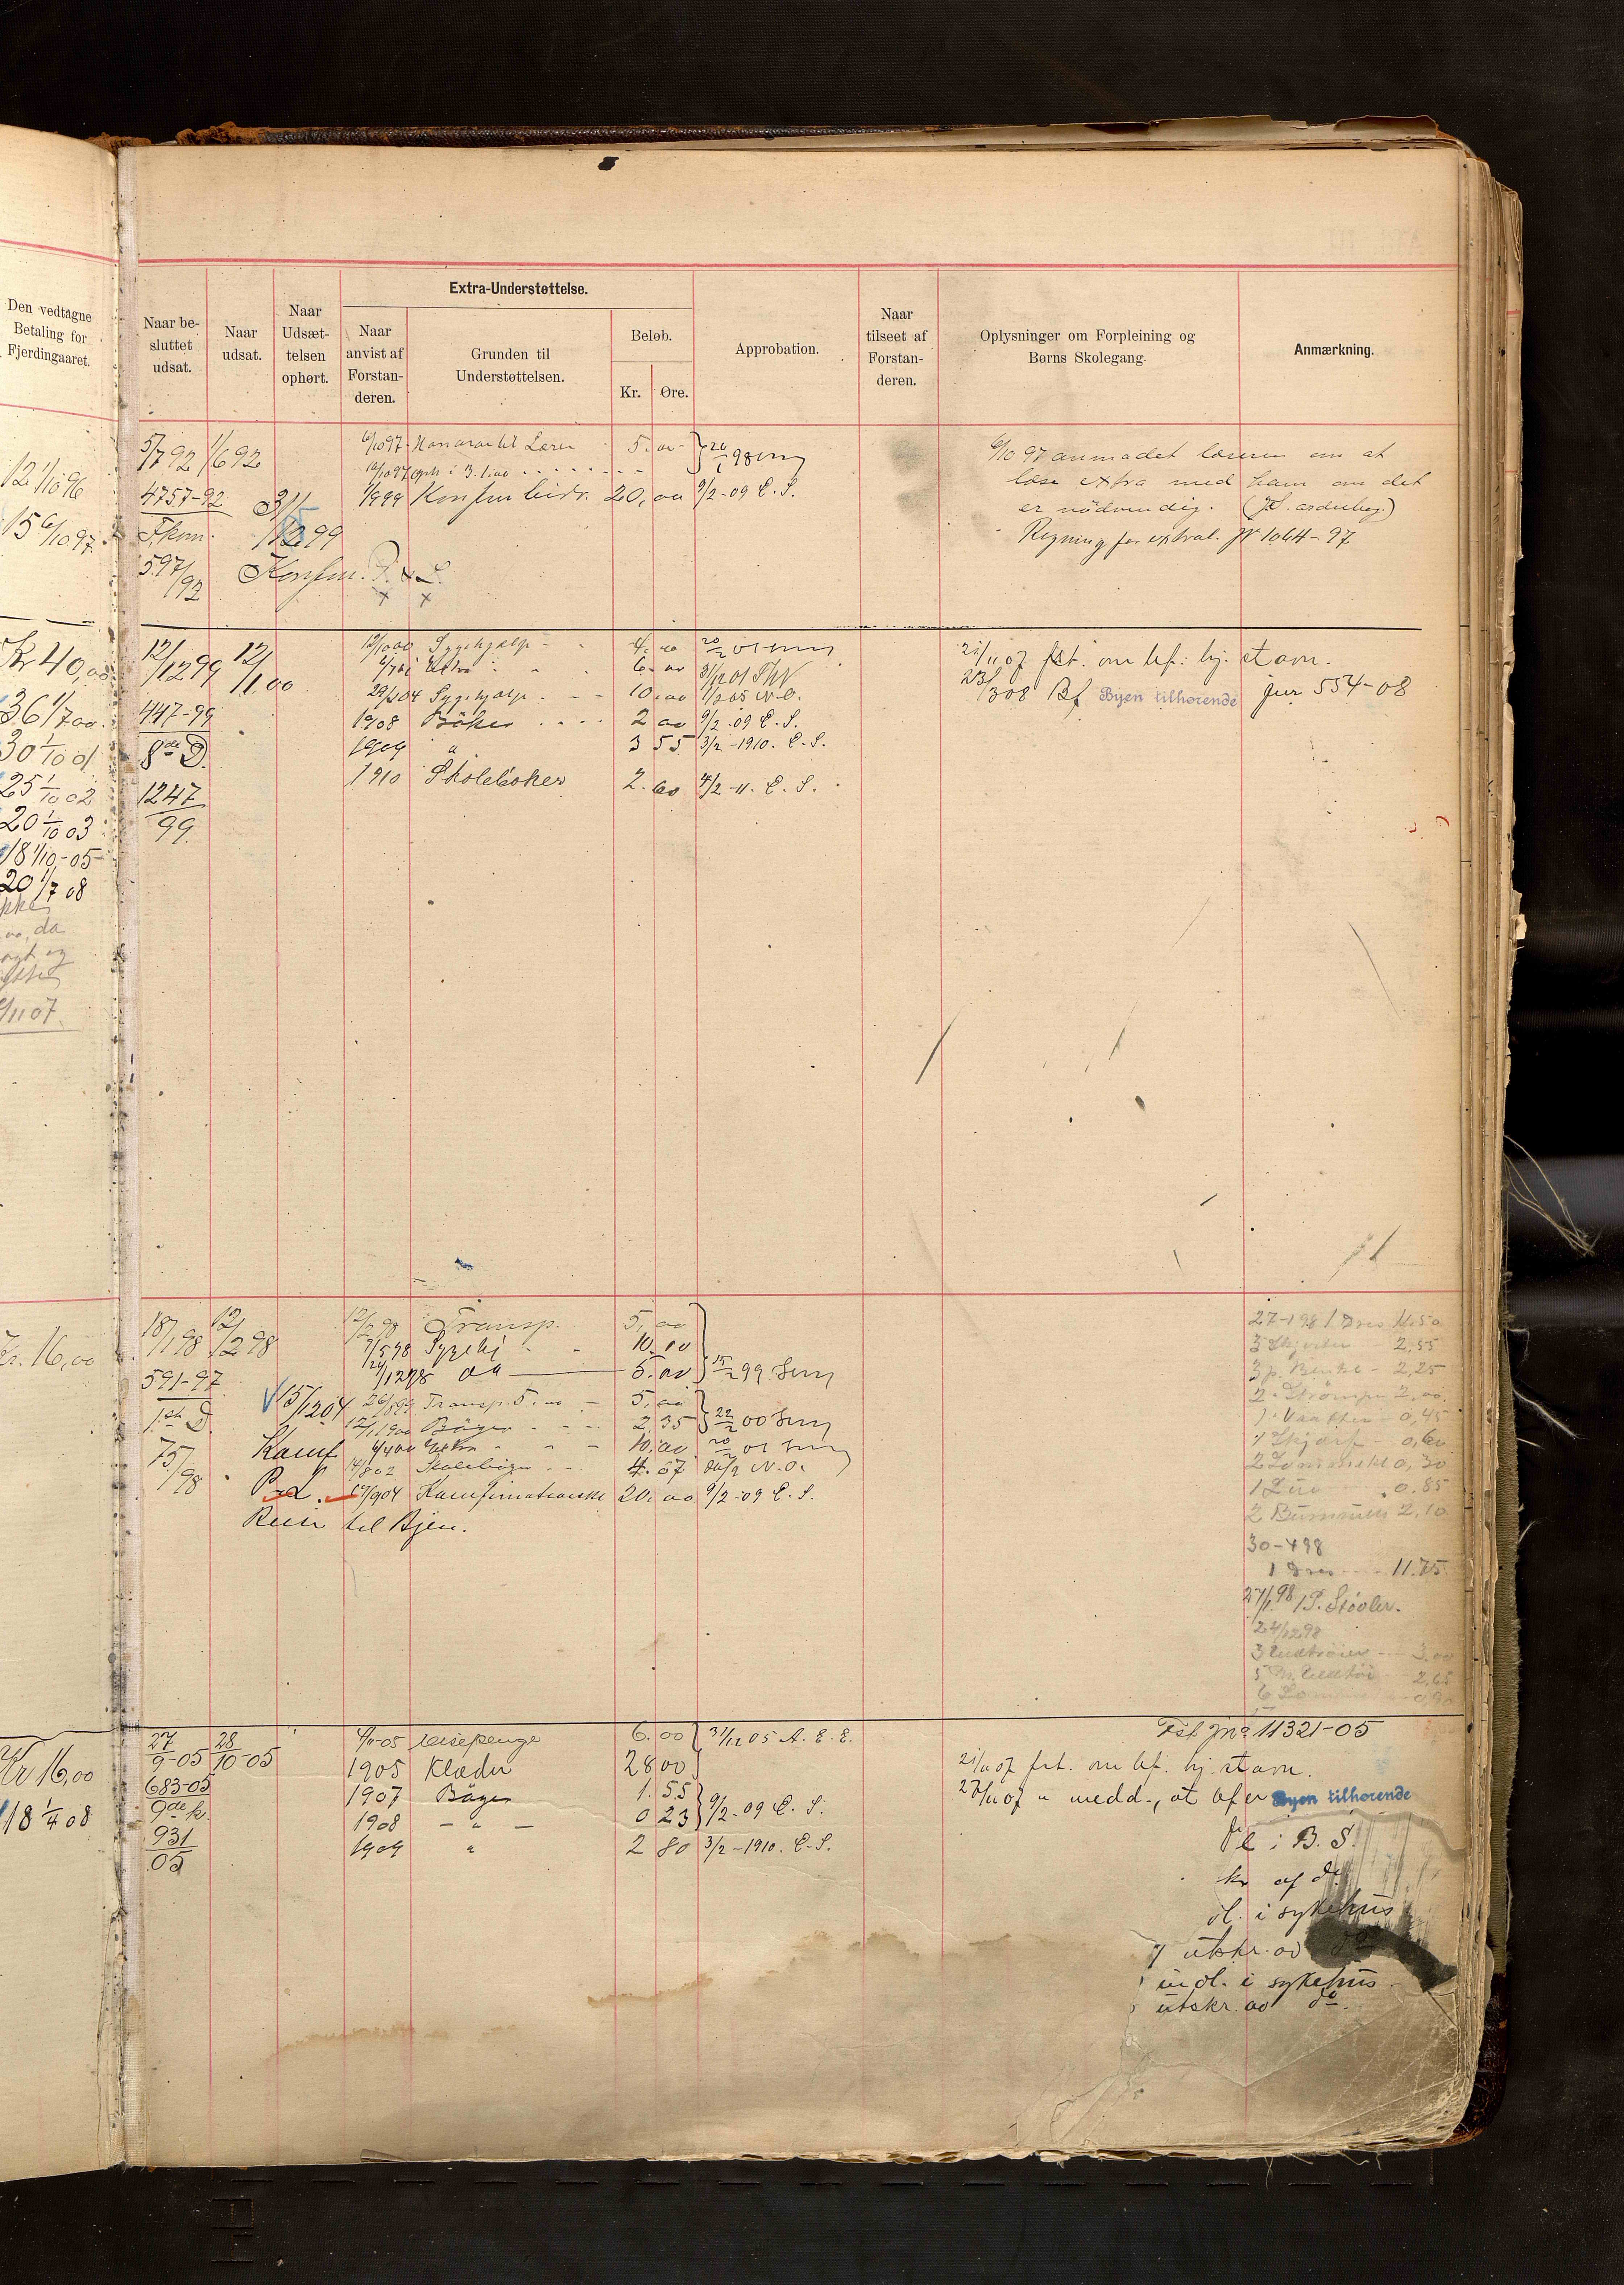 Den vedtagne
Betaling for
Fjerdingaaret.
Naar be-
sluttet
udsat.
Naar
udsat.
Naar
Udsæt-
telsen
ophørt.
Extra-Understøttelse.
Naar
anvist af
Forstan-
deren.
Grunden til
Understøttelsen.
Beløb.
Kr.
Øre.
Approbation.
Naar
tilseet af
Forstan-
deren.
Oplysninger om Forpleining og
Børns Skolegang.
Anmærkning.
12 1/10 96
15 6/10 97
5/7 92 1/6 92
4757-92
F.kom.
597/92
3/12 99
Konfm. P. & L.
6/10 97 Honorar til Lærer 5.00
1/9 99 Konfm bidr. 20,00 9/2-09 E.S.
6/10 97 anmodet læreren om at
læse extra med ham om det
er nødvendig.
Regning for extral. jr 1064-97
Kr 40,00
36 1/7 00
30 1/10 01
25 1/10 02
20 1/10 03
18 1/10-05
20 1/7 08
da
11 07
12/12 99 12/1.00
447-99
8de D.
1247
99
12/10 00 Sygehjælp 4.00
Extra 6.00 31/12 01
29/2 04 Sygehjælp 10.00 1/2 05 N.O.
1908 Bøker 2 00 9/2-09 E.S.
1909 " 3 55 3/2-1910. E.S.
1910 Skolebøker 2.60 4/2-11. E.S.
21/11 07 frt. om bf.: hj. stavn.
23/3 08 Bf Byen tilhørende jur 554-08
Kr. 16,00
18/1 98 12/2 98
591-97
1ste D
75/98
15/12 04
Konf
P & L.
Reist til Byen.
12/2 98 Transp. 5,00
7/5 98 Sygehj 10.00
24/12 98 do 5.00 15/2 99
26/8 99 Transp. 5.00 5,00
12/1 1900 Bøger 2,35 22/2 00
4/4 00 Extra 10.00 20/2 01
14/8 02 Skolebøger 4.57 N.O.
17/9 04 Konfirmationskl 20.00 9/2-09 E.S.
27-1 98 1 Dres 11.50
3 Skjorter 2,55
3 p. Benkl - 2,25
2 Strømper 2.00
1 Vanter - 0,45
1 Skjærf 0,60
0,30
1 Lue 0,85
2,10
30-4 98
1 Dres 11.75
27/1 98 1 P. Støvler.
24/12 98
3 Undtrøier 3.00
2,65
0,90
Kr 16,00
18 1/4 08
27/9-05 28/10-05
683-05
9de k.
931
05
4/11-05 reisepenge 6.00 31/12 05 A. E. E.
1905 Klæder 28 00
1907 Bøger 1.55
1908 - " - 0 23 9/2-09 E.S.
1909 " 2 80 3/2-1910. E.S.
Fsf jno 11321-05
21/11 07 frt. om bf. hj. stavn.
27/11 07 " medd., at bf er Byen tilhørende
i B. S.
kr af do
dl. i sykehus
utskr. av do
indl. i sykehus
utskr. av do.